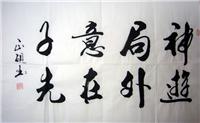 神遊
局外
意在
子先